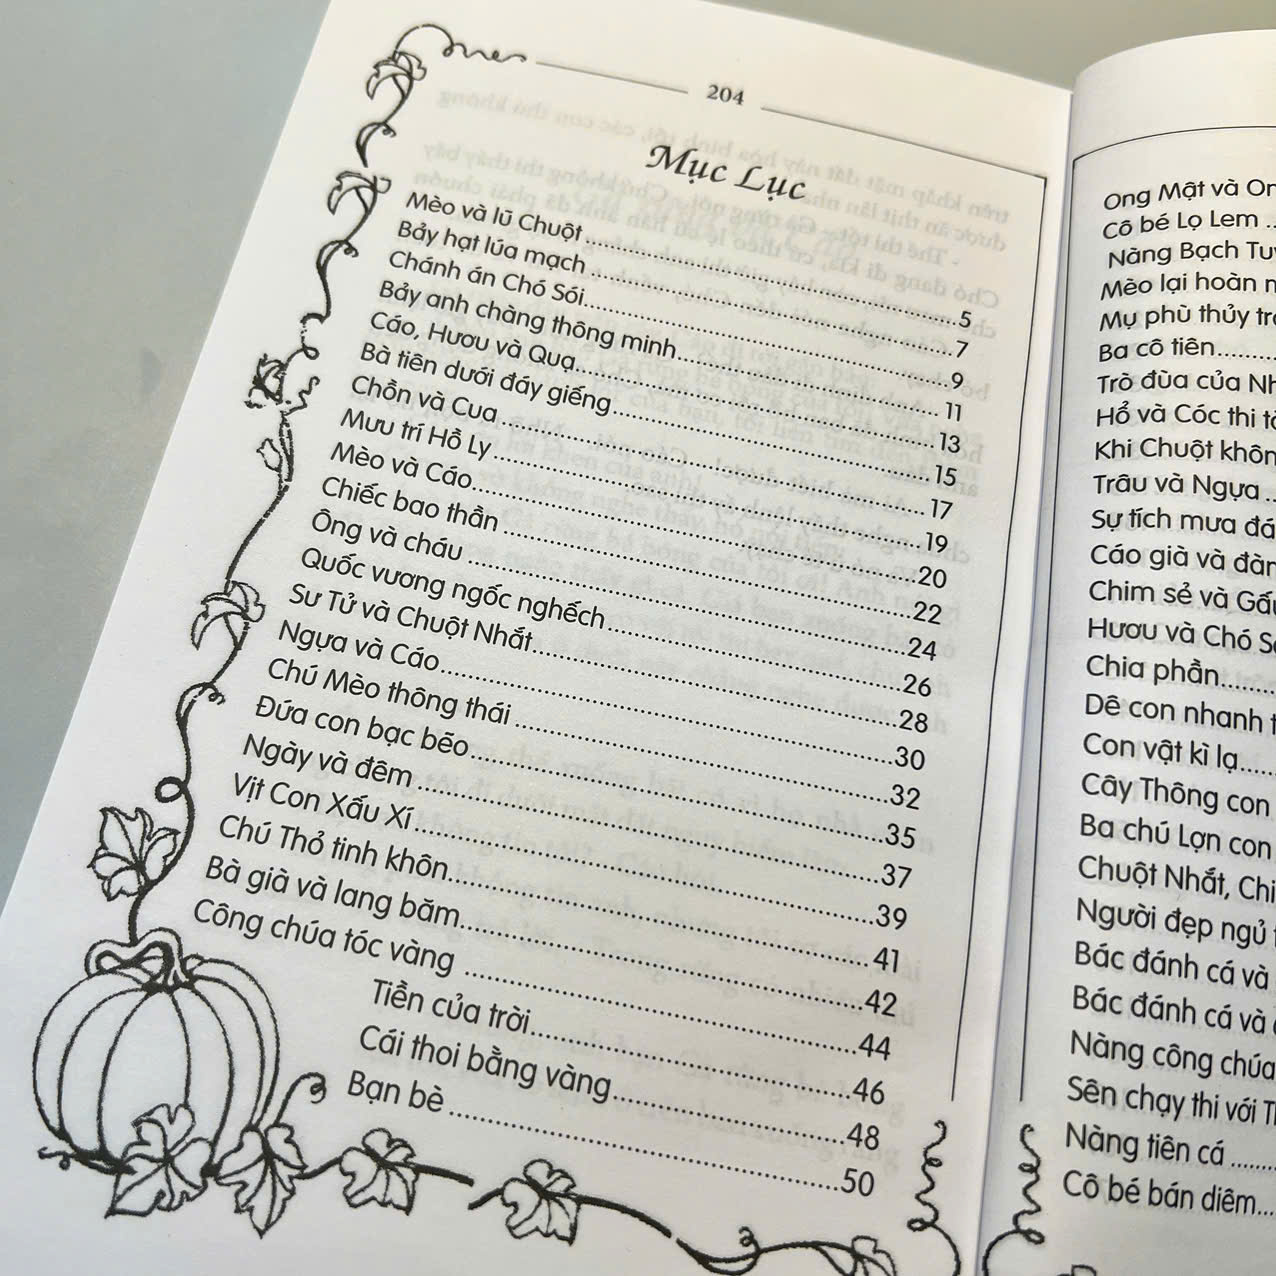 204
Mục Lục
Mèo và lũ Chuột ........ 5
Bảy hạt lúa mạch ........ 7
Chánh án Chó Sói ........ 9
Bảy anh chàng thông minh ........ 11
Cáo, Hươu và Quạ ........ 13
Bà tiên dưới đáy giếng ........ 15
Chồn và Cua ........ 17
Mưu trí Hồ Ly ........ 19
Mèo và Cáo ........ 20
Chiếc bao thần ........ 22
Ông và cháu ........ 24
Quốc vương ngốc nghếch ........ 26
Sư Tử và Chuột Nhắt ........ 28
Ngựa và Cáo ........ 30
Chú Mèo thông thái ........ 32
Đứa con bạc bẽo ........ 35
Ngày và đêm ........ 37
Vịt Con Xấu Xí ........ 39
Chú Thỏ tinh khôn ........ 41
Bà già và lang băm ........ 42
Công chúa tóc vàng ........ 44
Tiền của trời ........ 46
Cái thoi bằng vàng ........ 48
Bạn bè ........ 50
Ong Mật và
Cô bé Lọ Lem ...
Nàng Bạch
Mèo lại hoàn
Mụ phù thủy
Ba cô tiên ........
Trò đùa của
Hổ và Cóc thi
Khi Chuột
Trâu và Ngựa ...
Sự tích mưa đá
Cáo già và
Chim sẻ và
Hươu và Chó
Chia phần ........
Dê con nhanh
Con vật kì lạ ......
Cây Thông con
Ba chú Lợn con
Chuột Nhắt,
Người đẹp ngủ
Bác đánh cá và
Bác đánh cá và
Nàng công chúa
Sên chạy thi với
Nàng tiên cá ........
Cô bé bán diêm ...